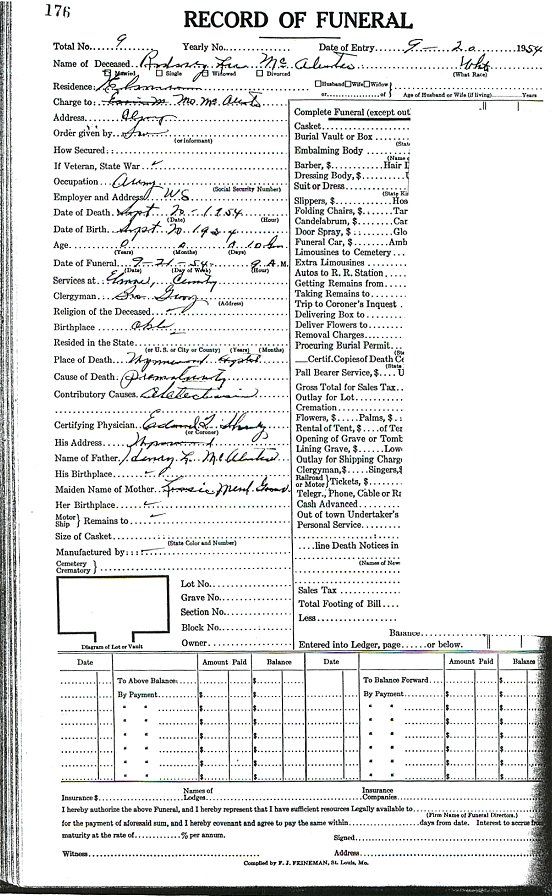 176
RECORD OF FUNERAL
Total No. 9 Yearly No. Date of Entry 9-20 1954
Name of Deceased Mc
Married Single Widowed Divorced (What Race)
Residence
Husband Wife Widow
or of Age of Husband or Wife (if living) Years
Charge to:
Address
Order given by
(or Informant)
How Secured
If Veteran, State War
Occupation Army
(Social Security Number)
Employer and Address U S
Date of Death Sept 20-1954
(Date) (Hour)
Date of Birth Sept 20 1954
Age 0 0 0
(Years) (Months) (Days)
Date of Funeral 9-21-54 9 A.M.
(Date) (Day of Week) (Hour)
Services at Cemetery
Clergyman
(Address)
Religion of the Deceased
Birthplace Okla
Resided in the State
(or U. S. or City or County) (Years) (Months)
Place of Death Wynnewood Hospital
Cause of Death Prematurity
Contributory Causes Atelectasis
Certifying Physician Edward
(or Coroner)
His Address Wynnewood
Name of Father Henry L. Mc
His Birthplace
Maiden Name of Mother
Her Birthplace
Motor
Ship } Remains to
Size of Casket
(State Color and Number)
Manufactured by
Cemetery
Crematory }
Diagram of Lot or Vault
Lot No.
Grave No.
Section No.
Block No.
Owner
Complete Funeral (except out
Casket
Burial Vault or Box
(Stat
Embalming Body
(Name o
Barber, $ Hair
Dressing Body, $
Suit or Dress
(State Ki
Slippers, $ Hos
Folding Chairs, $ Tar
Candelabrum, $ Car
Door Spray, $ Glo
Funeral Car, $ Amb
Limousines to Cemetery
Extra Limousines
Autos to R. R. Station
Getting Remains from
Taking Remains to
Trip to Coroner's Inquest
Delivering Box to
Deliver Flowers to
Removal Charges
Procuring Burial Permit
(Sta
Certif. Copies of Death Ce
(State
Pall Bearer Service, $ U
Gross Total for Sales Tax
Outlay for Lot
Cremation
Flowers, $ Palms, $
Rental of Tent, $ of Ter
Opening of Grave or Tomb
Lining Grave, $ Low
Outlay for Shipping Charg
Clergyman, $ Singers, $
Railroad
or Motor } Tickets, $
Telegr., Phone, Cable or Ra
Cash Advanced
Out of town Undertaker's
Personal Service
line Death Notices in
(Names of New
Sales Tax
Total Footing of Bill
Less
Balance
Entered into Ledger, page or below.
Date Amount Paid Balance Date Amount Paid Balance
To Above Balance $ To Balance Forward $
By Payment $ By Payment $
" " $ " " $
" " $ " " $
" " $ " " $
" " $ " " $
" " $ " " $
" " $ " " $
Insurance $ Names of Lodges Insurance Companies
I hereby authorize the above Funeral, and I hereby represent that I have sufficient resources Legally available to
(Firm Name of Funeral Directors.)
for the payment of aforesaid sum, and I hereby covenant and agree to pay the same within days from date. Interest to accrue from
maturity at the rate of % per annum. Signed
Witness Address
Compiled by F. J. FEINEMAN, St. Louis, Mo.